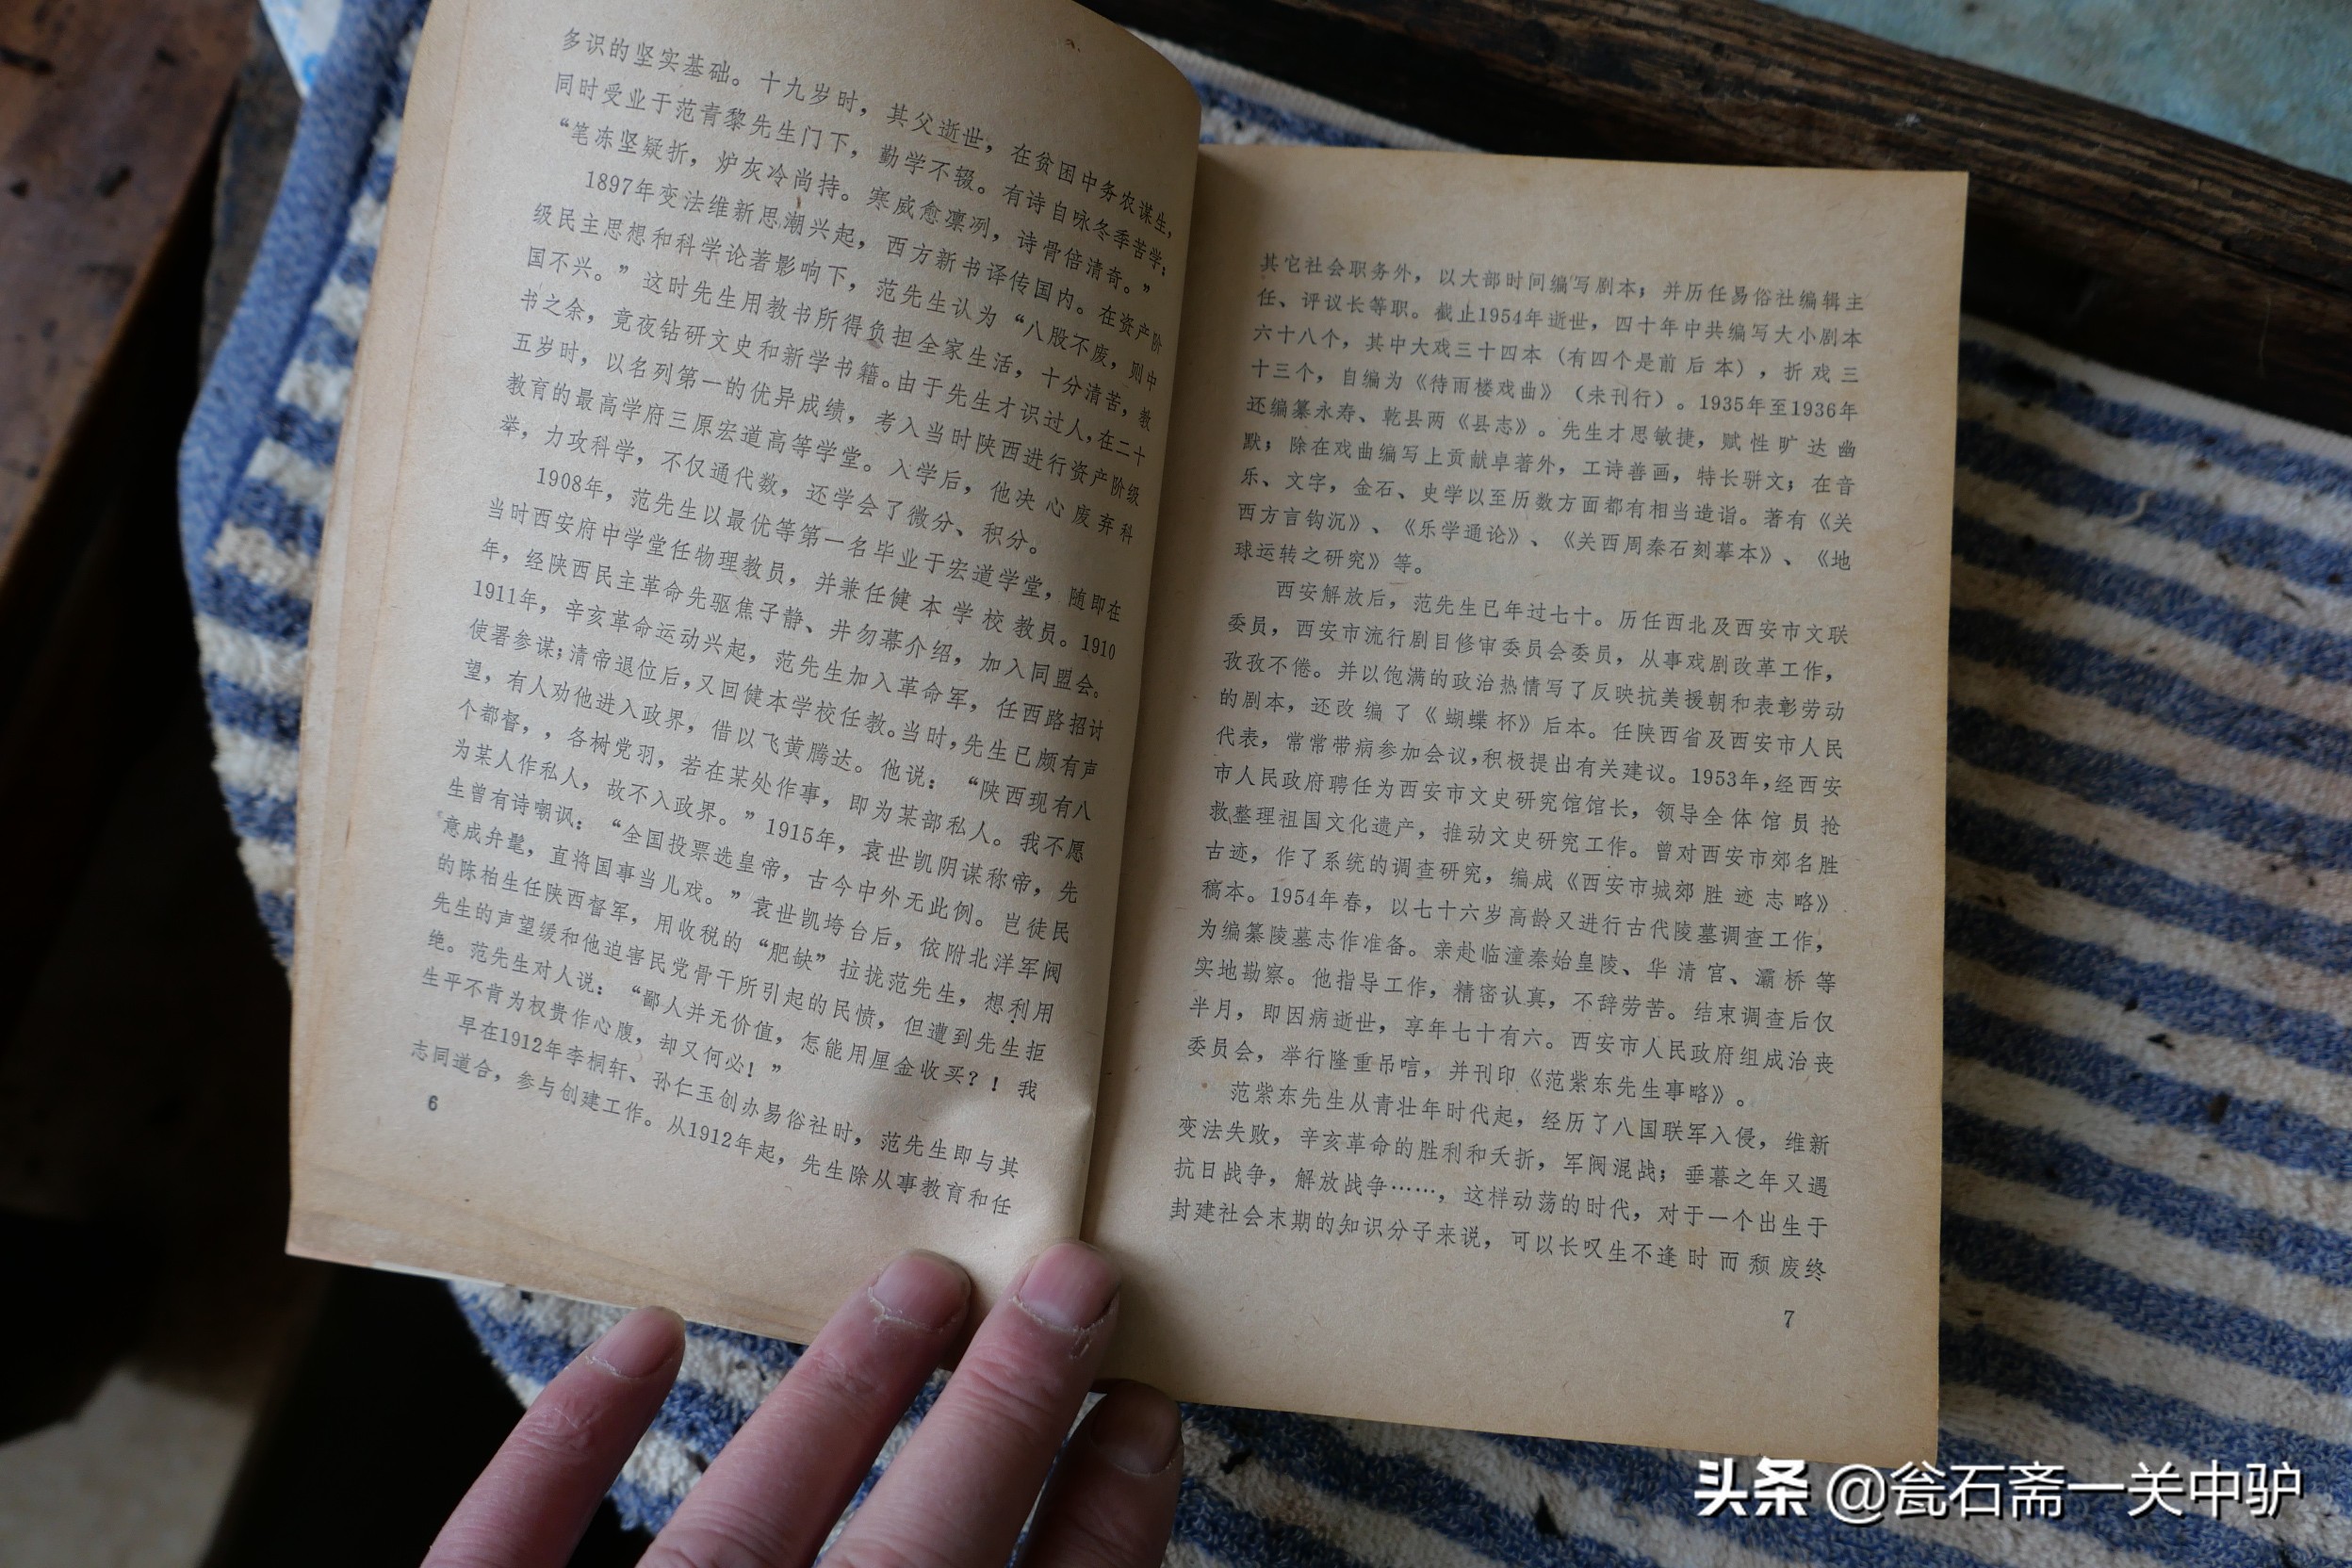 多识的坚实基础。十九岁时，其父逝世，在贫困中务农谋生，
同时受业于范青黎先生门下，勤学不辍。有诗自咏冬季苦学：
“笔冻坚疑折，炉灰冷尚持。寒威愈凛冽，诗骨倍清奇。”
1897年变法维新思潮兴起，西方新书译传国内。在资产阶
级民主思想和科学论著影响下，范先生认为“八股不废，则中
国不兴。”这时先生用教书所得负担全家生活，十分清苦，教
书之余，竟夜钻研文史和新学书籍。由于先生才识过人，在二十
五岁时，以名列第一的优异成绩，考入当时陕西进行资产阶级
教育的最高学府三原宏道高等学堂。入学后，他决心废弃科
举，力攻科学，不仅通代数，还学会了微分、积分。
1908年，范先生以最优等第一名毕业于宏道学堂，随即在
当时西安府中学堂任物理教员，并兼任健本学校教员。1910
年，经陕西民主革命先驱焦子静、井勿幕介绍，加入同盟会。
1911年，辛亥革命运动兴起，范先生加入革命军，任西路招讨
使署参谋；清帝退位后，又回健本学校任教。当时，先生已颇有声
望，有人劝他进入政界，借以飞黄腾达。他说：“陕西现有八
个都督，，各树党羽，若在某处作事，即为某部私人。我不愿
为某人作私人，故不入政界。”1915年，袁世凯阴谋称帝，先
生曾有诗嘲讽：“全国投票选皇帝，古今中外无此例。岂徒民
意成弁髦，直将国事当儿戏。”袁世凯垮台后，依附北洋军阀
的陈柏生任陕西督军，用收税的“肥缺”拉拢范先生，想利用
先生的声望缓和他迫害民党骨干所引起的民愤，但遭到先生拒
绝。范先生对人说：“鄙人并无价值，怎能用厘金收买？！我
生平不肯为权贵作心腹，却又何必！”
早在1912年李桐轩、孙仁玉创办易俗社时，范先生即与其
志同道合，参与创建工作。从1912年起，先生除从事教育和任
6
其它社会职务外，以大部时间编写剧本；并历任易俗社编辑主
任、评议长等职。截止1954年逝世，四十年中共编写大小剧本
六十八个，其中大戏三十四本（有四个是前后本），折戏三
十三个，自编为《待雨楼戏曲》（未刊行）。1935年至1936年
还编纂永寿、乾县两《县志》。先生才思敏捷，赋性旷达幽
默；除在戏曲编写上贡献卓著外，工诗善画，特长骈文；在音
乐、文字，金石、史学以至历数方面都有相当造诣。著有《关
西方言钩沉》、《乐学通论》、《关西周秦石刻摹本》、《地
球运转之研究》等。
西安解放后，范先生已年过七十。历任西北及西安市文联
委员，西安市流行剧目修审委员会委员，从事戏剧改革工作，
孜孜不倦。并以饱满的政治热情写了反映抗美援朝和表彰劳动
的剧本，还改编了《蝴蝶杯》后本。任陕西省及西安市人民
代表，常常带病参加会议，积极提出有关建议。1953年，经西安
市人民政府聘任为西安市文史研究馆馆长，领导全体馆员抢
救整理祖国文化遗产，推动文史研究工作。曾对西安市郊名胜
古迹，作了系统的调查研究，编成《西安市城郊胜迹志略》
稿本。1954年春，以七十六岁高龄又进行古代陵墓调查工作，
为编纂陵墓志作准备。亲赴临潼秦始皇陵、华清宫、灞桥等
实地勘察。他指导工作，精密认真，不辞劳苦。结束调查后仅
半月，即因病逝世，享年七十有六。西安市人民政府组成治丧
委员会，举行隆重吊唁，并刊印《范紫东先生事略》。
范紫东先生从青壮年时代起，经历了八国联军入侵，维新
变法失败，辛亥革命的胜利和夭折，军阀混战；垂暮之年又遇
抗日战争，解放战争……，这样动荡的时代，对于一个出生于
封建社会末期的知识分子来说，可以长叹生不逢时而颓废终
7
头条 @瓮石斋一关中驴